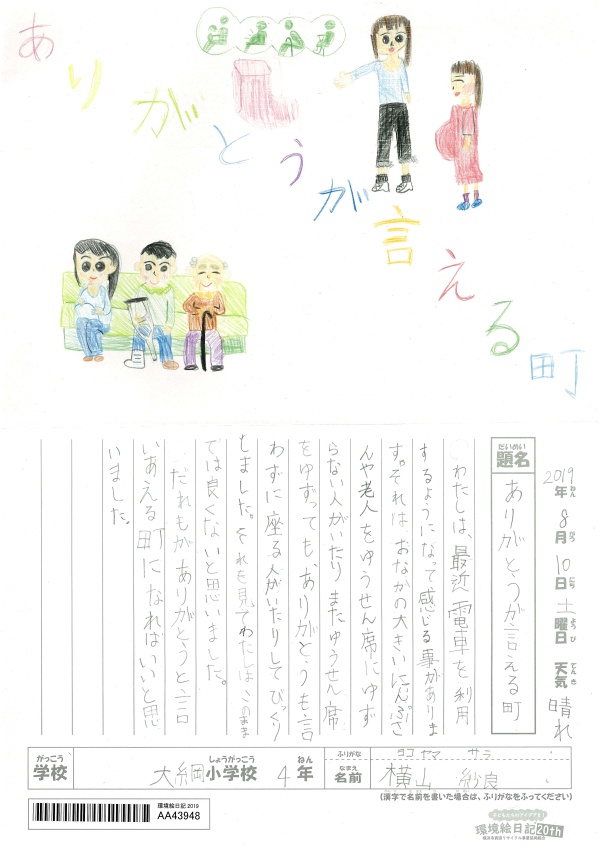 ありがとうが言える町
2019年8月10日土曜日 天気晴れ
ねん がつ にち ようび てんき
だいめい
題名
ありがとうが言える町
わたしは、最近電車を利用
するようになって感じる事がありま
す。それはおなかの大きいにんぷさ
んや老人をゆうせん席にゆず
らない人がいたり、またゆうせん席
をゆずっても、ありがとうも言
わずに座る人がいたりしてびっくり
しました。それを見てわたしは、このまま
では良くないと思いました。
だれもがありがとうと言
いあえる町になればいいと思
いました。
がっこう
学校
しょうがっこう
大綱小学校
ねん
4年
ふりがな
ヨコヤマ サラ
なまえ
名前
横山 紗良
(漢字で名前を書いた場合は、ふりがなをふってください)
環境絵日記 2019
AA43948
環境絵日記20th